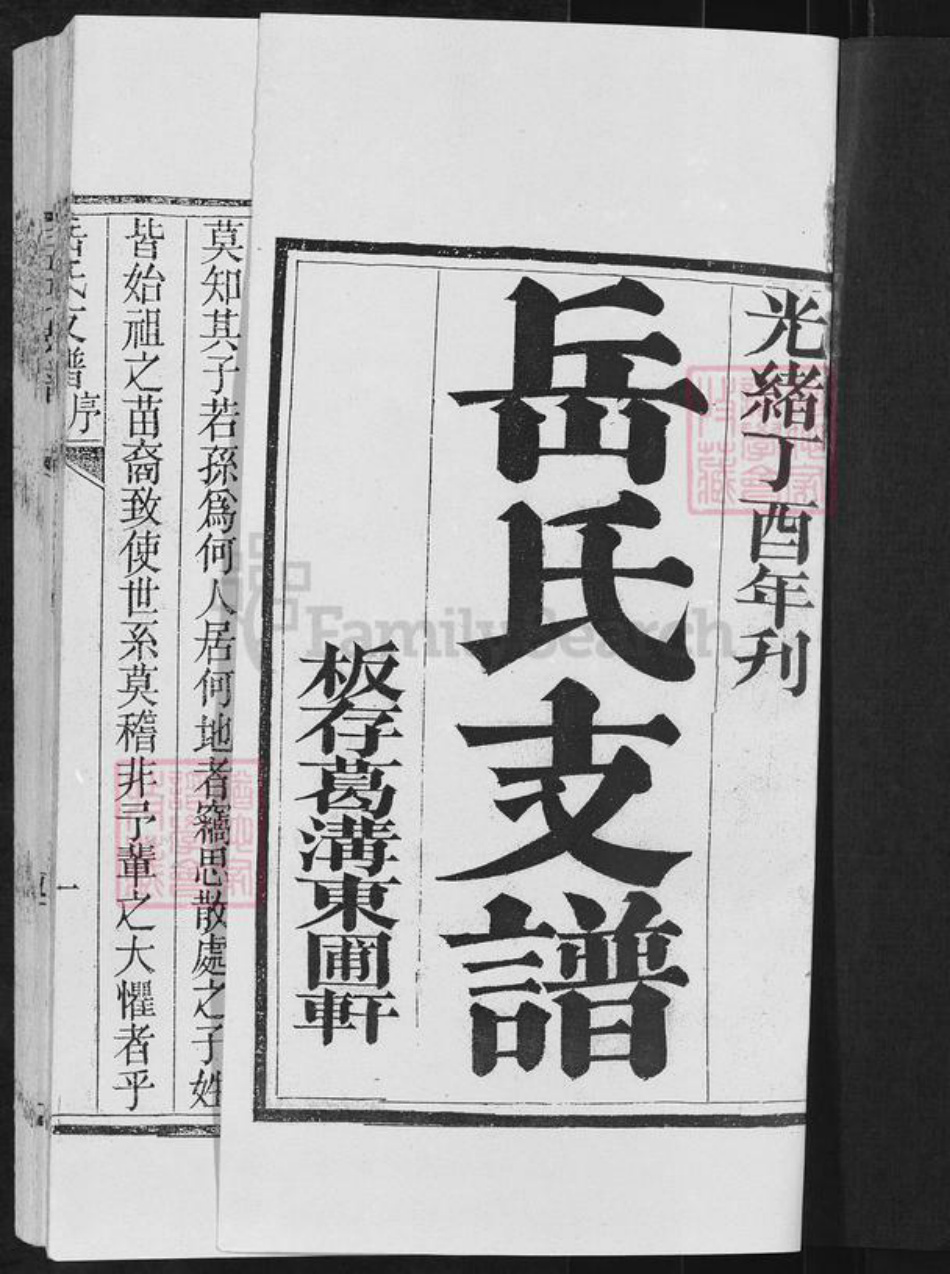 光緒丁酉年刊
岳氏支譜
板存葛溝東圃軒
莫知其子若孫爲何人居何地者竊思散處之子姓
皆始祖之苗裔致使世系莫稽非予輩之大懼者乎
岳氏支譜 序
一
FamilySearch